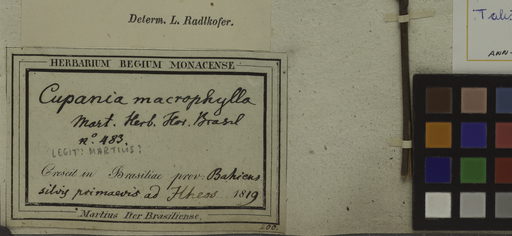 Determ. L. Radlkofer.
Talis
ANN
HERBARIUM REGIUM MONACENSE
Cupania macrophylla
Mart. Herb. Flor. Brasil
n.o 483.
LEGIT: MARTIUS:
Crescit in Brasiliae prov: Bahiens
silvis primaevis ad Ilheos 1819
Martius Iter Brasiliense.
200.